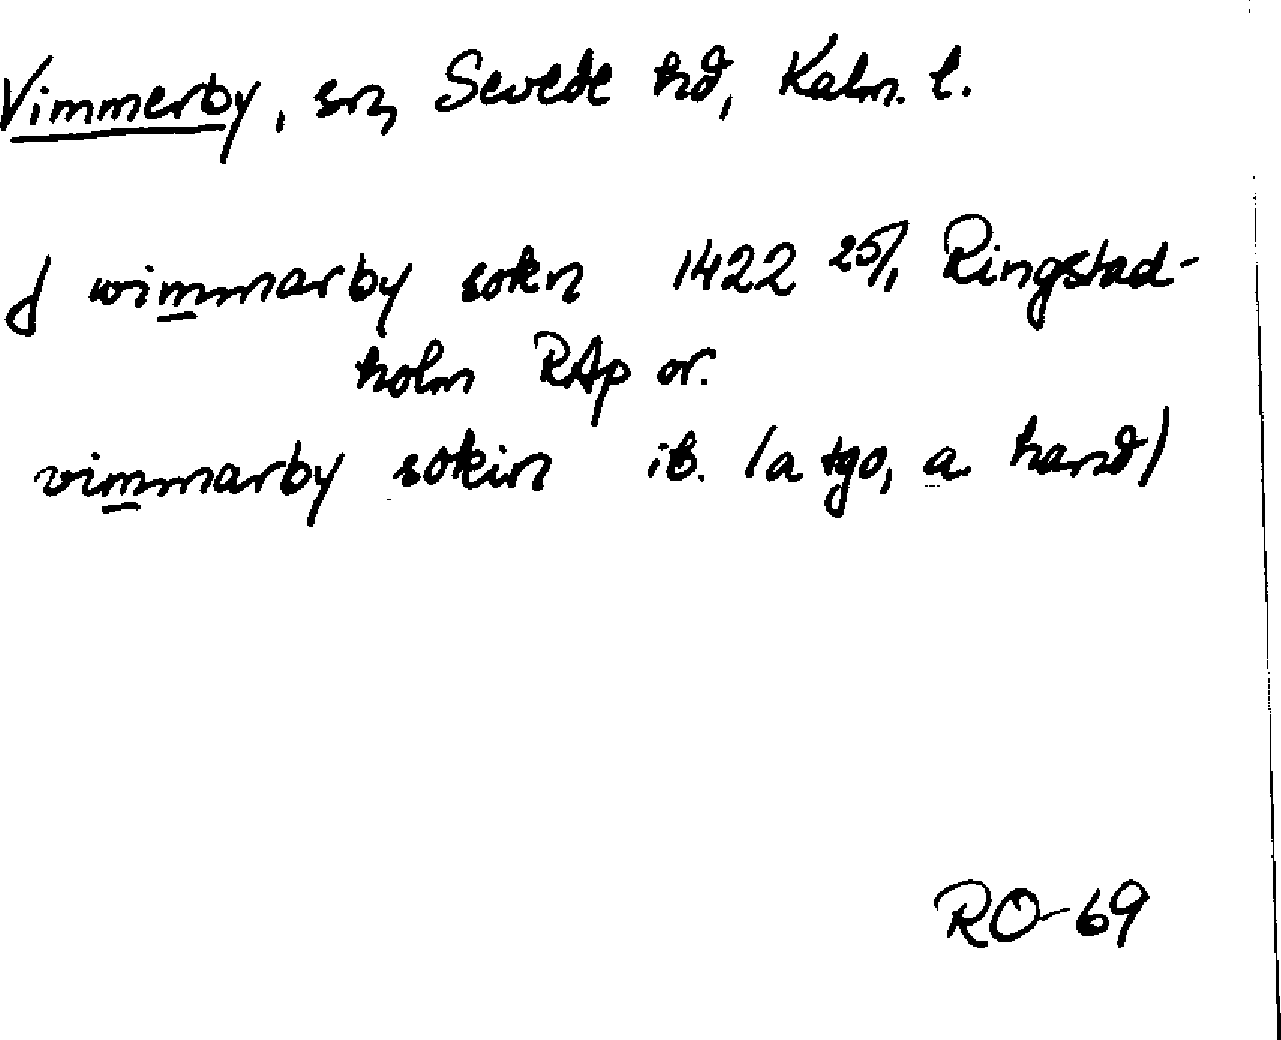 Vimmerby, sn, Sevede hd, Kalm. l.
J wimmarby sokn 1422 25/1 Ringstad-
holm RAp or.
vimmarby sokin ib. (a tgo, a hand)
RO-69